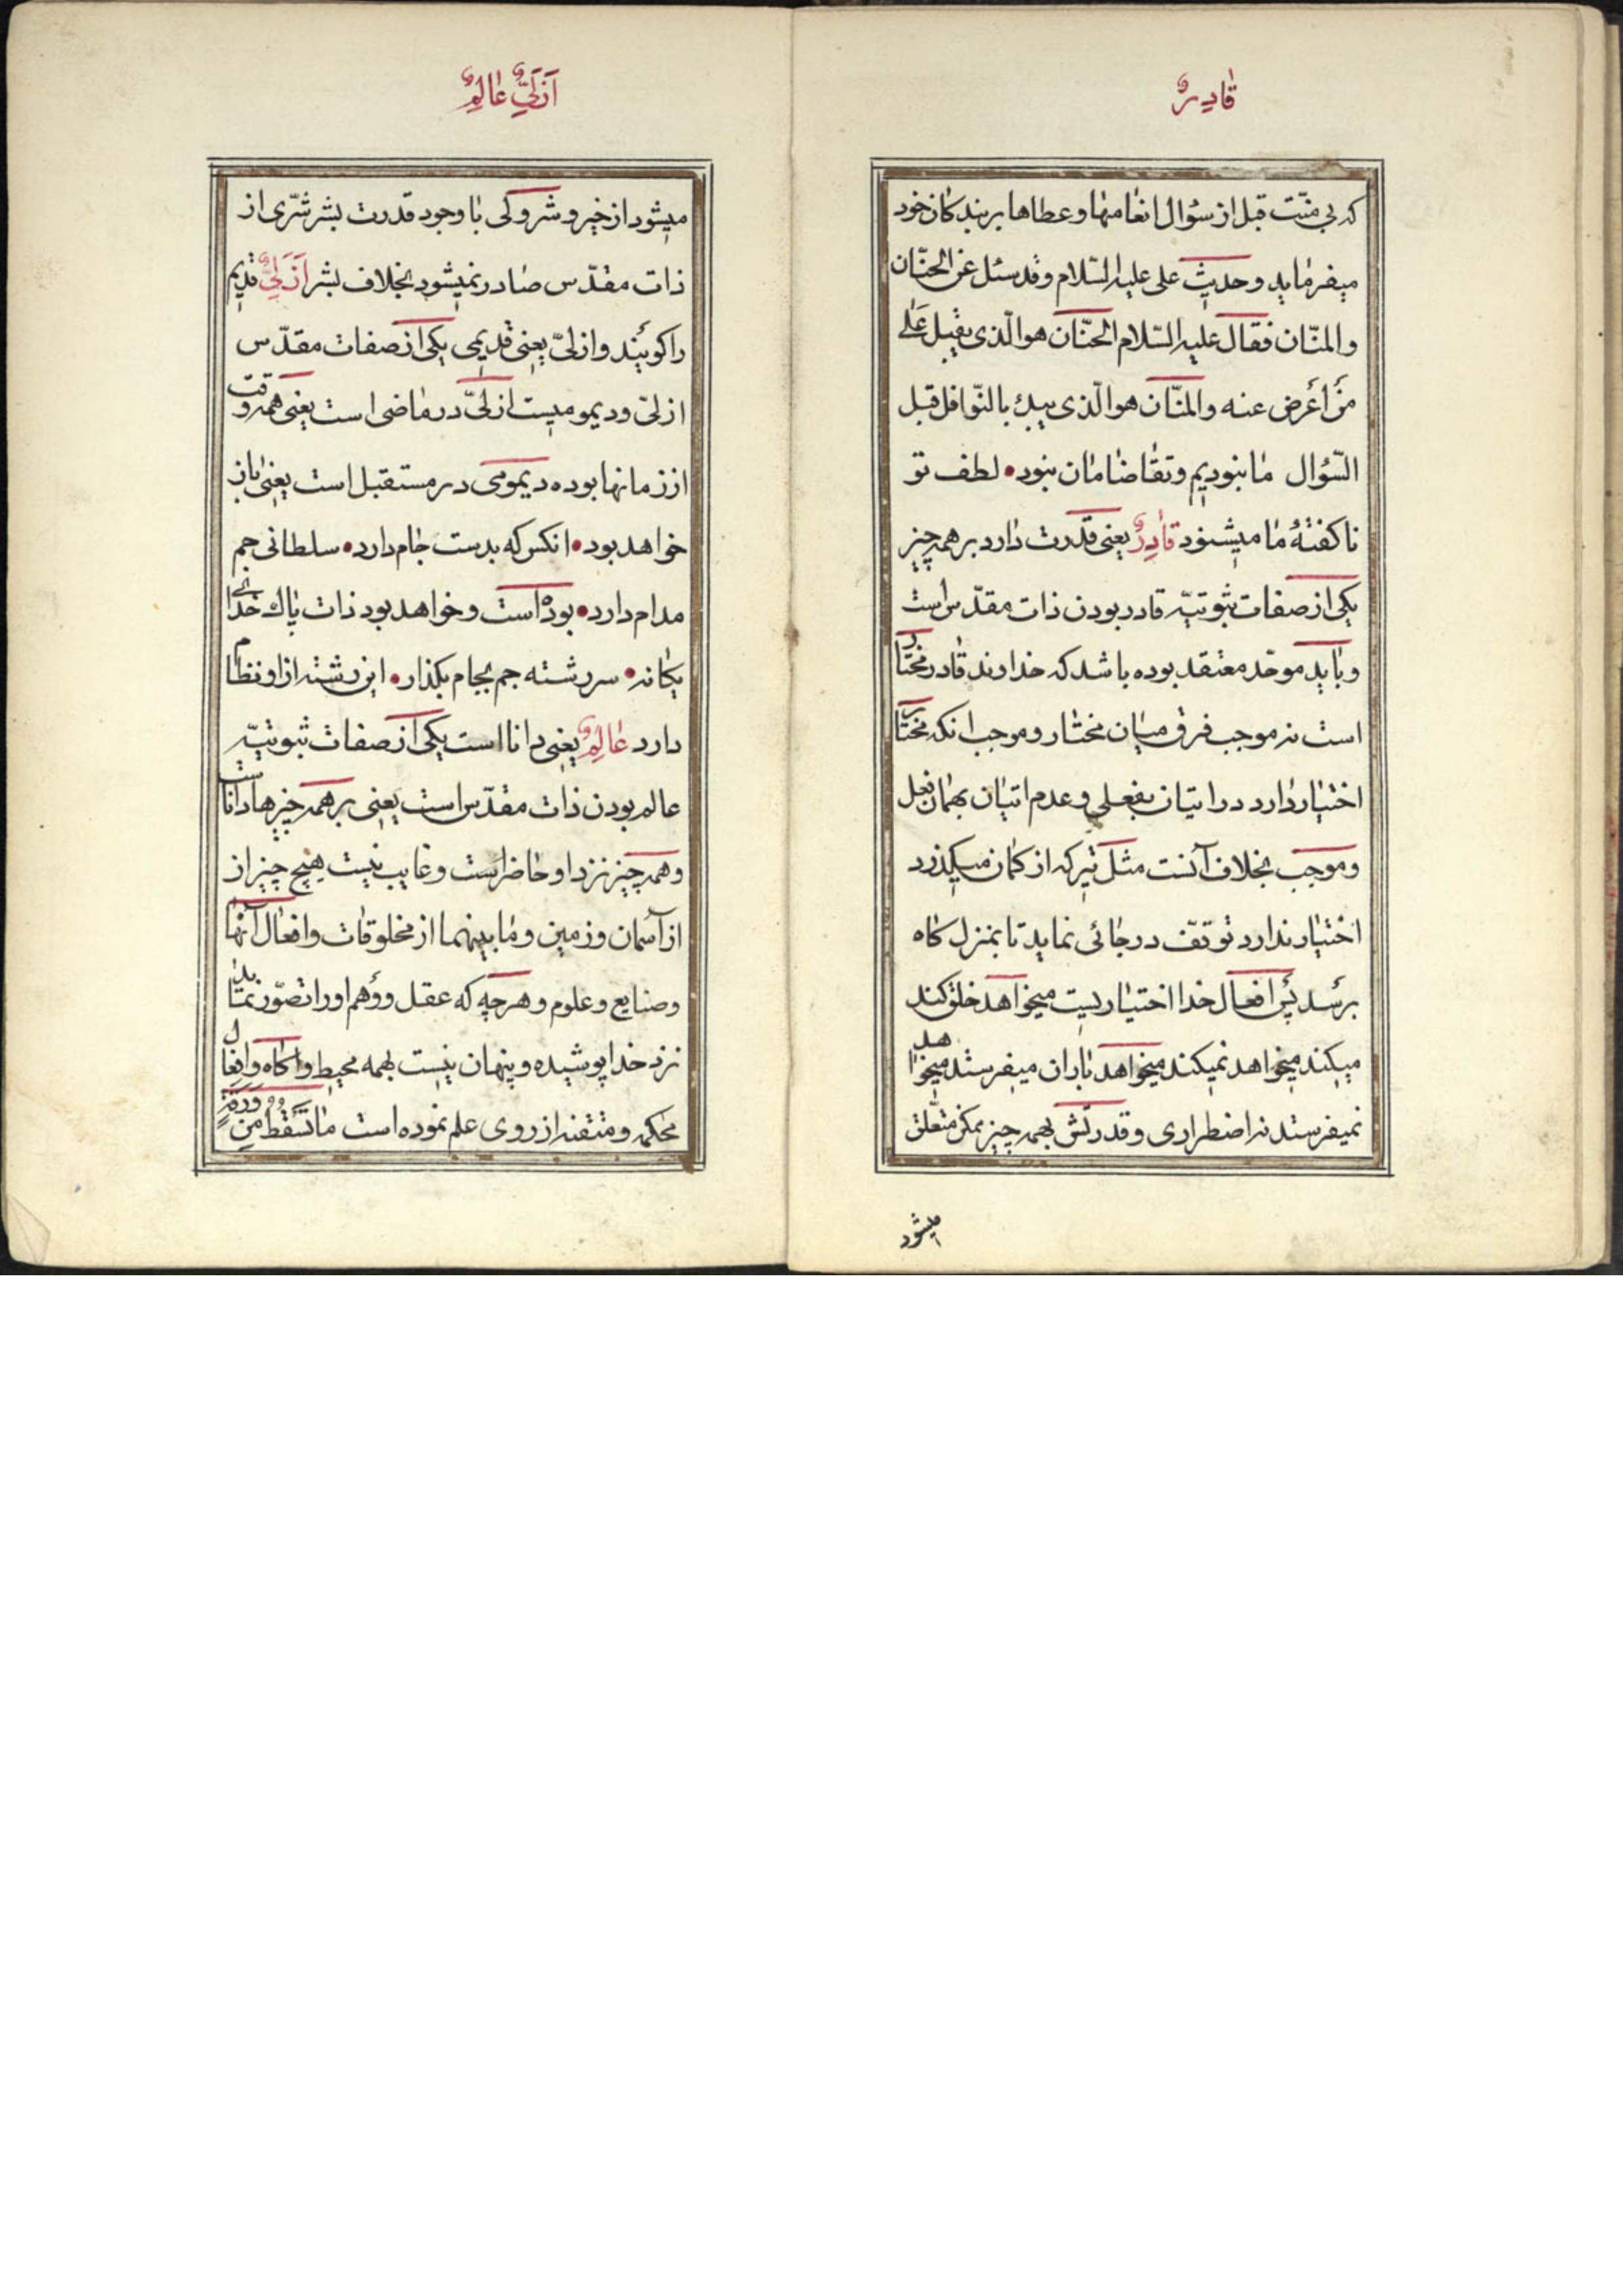 قَادِرٌ
که بی منّت قبل از سئوال انعامها و عطاها بر بندکان خود
میفرماید و حدیث علی علیه السّلام وقد سئل عن الحنّان
والمنّان فقال علیه السّلام الحنّان هو الّذی یقبل عَلی
مَنْ أعرض عنه والمنّان هو الّذی یبدء بالنّوافل قبل
السّؤال ما نبودیم و تقاضامان نبود • لطف تو
ناکفتهٔ ما میشنود قادِرٌ یعنی قدرت دارد بر همه چیز
یکی از صفات ثبوتیّه قادر بودن ذات مقدّس است
و باید موحّد معتقد بوده باشد که خداوند قادر مختار
است نه موجب فرق میان مختار و موجب انکه مختار
اختیار دارد در اتیان بفعلی و عدم اتیان بهمان فعل
و موجب بخلاف آنست مثل تیر که از کمان میکذرد
اختیار ندارد توقّف در جائی نماید تا بمنزل کاه
برسد پس افعال خدا اختیاریست میخواهد خلق کند
میکند میخواهد نمیکند میخواهد باران میفرستد میخواهد
نمیفرستد نه اضطراری و قدرتش بهمه چیز ممکن متعلّق
میشود
اَزَلِیٌّ عَالِمٌ
میشود از خیر و شر وکی با وجود قدرت بشر شرّی از
ذات مقدّس صادر نمیشود بخلاف بشر اَزَلِیٌّ قدیم
را کویند و ازلیّ یعنی قدیمی یکی از صفات مقدّس
ازلیّ و دیمومیست ازلیّ در ماضی است یعنی همه وقت
از زمانها بوده دیمومی در مستقبل است یعنی باز
خواهد بود • انکس که بدست جام دارد • سلطانی جم
مدام دارد • بوده است و خواهد بود ذات پاك خدای
یکانه • سررشته جم بجام بکذار • این رشته از او نظام
دارد عَالِمٌ یعنی دانا است یکی از صفات ثبوتیّه
عالم بودن ذات مقدّس است یعنی بر همه چیزها داناست
و همه چیز نزد او حاضر است و غایب نیست هیچ چیز از
از آسمان و زمین و ما بینهما از مخلوقات و افعال آنها
و صنایع و علوم و هرچه که عقل و وهم او را تصوّر نماید
نزد خدا پوشیده و پنهان نیست بهمه محیط و اکاه و افعال
محکمه و متقنه از روی علم نموده است ما تَسْقُطُ مِنْ وَرَقَةٍ